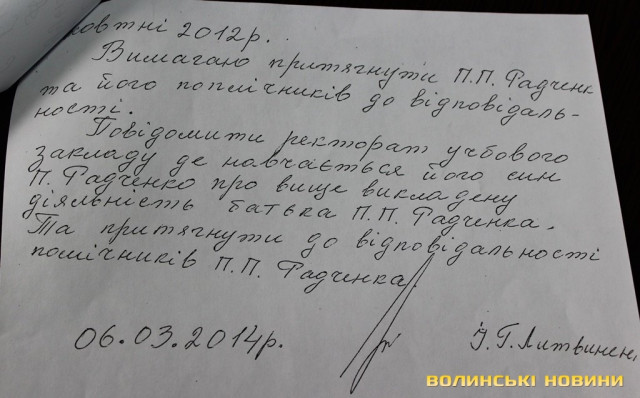 жовтні 2012р.
Вимагаю притягнути П.П. Радченк
та його попмічників до відповідаль-
ності.
Повідомити ректорат учбового
закладу де навчається його син
П. Радченко про вище викладену
діяльність батька П.П. Радченка.
Та притягнути до відповідальності
помічників П.П. Радченка.
06.03.2014р.
І.Г. Литвинен
ВОЛИНСЬКІ НОВИНИ